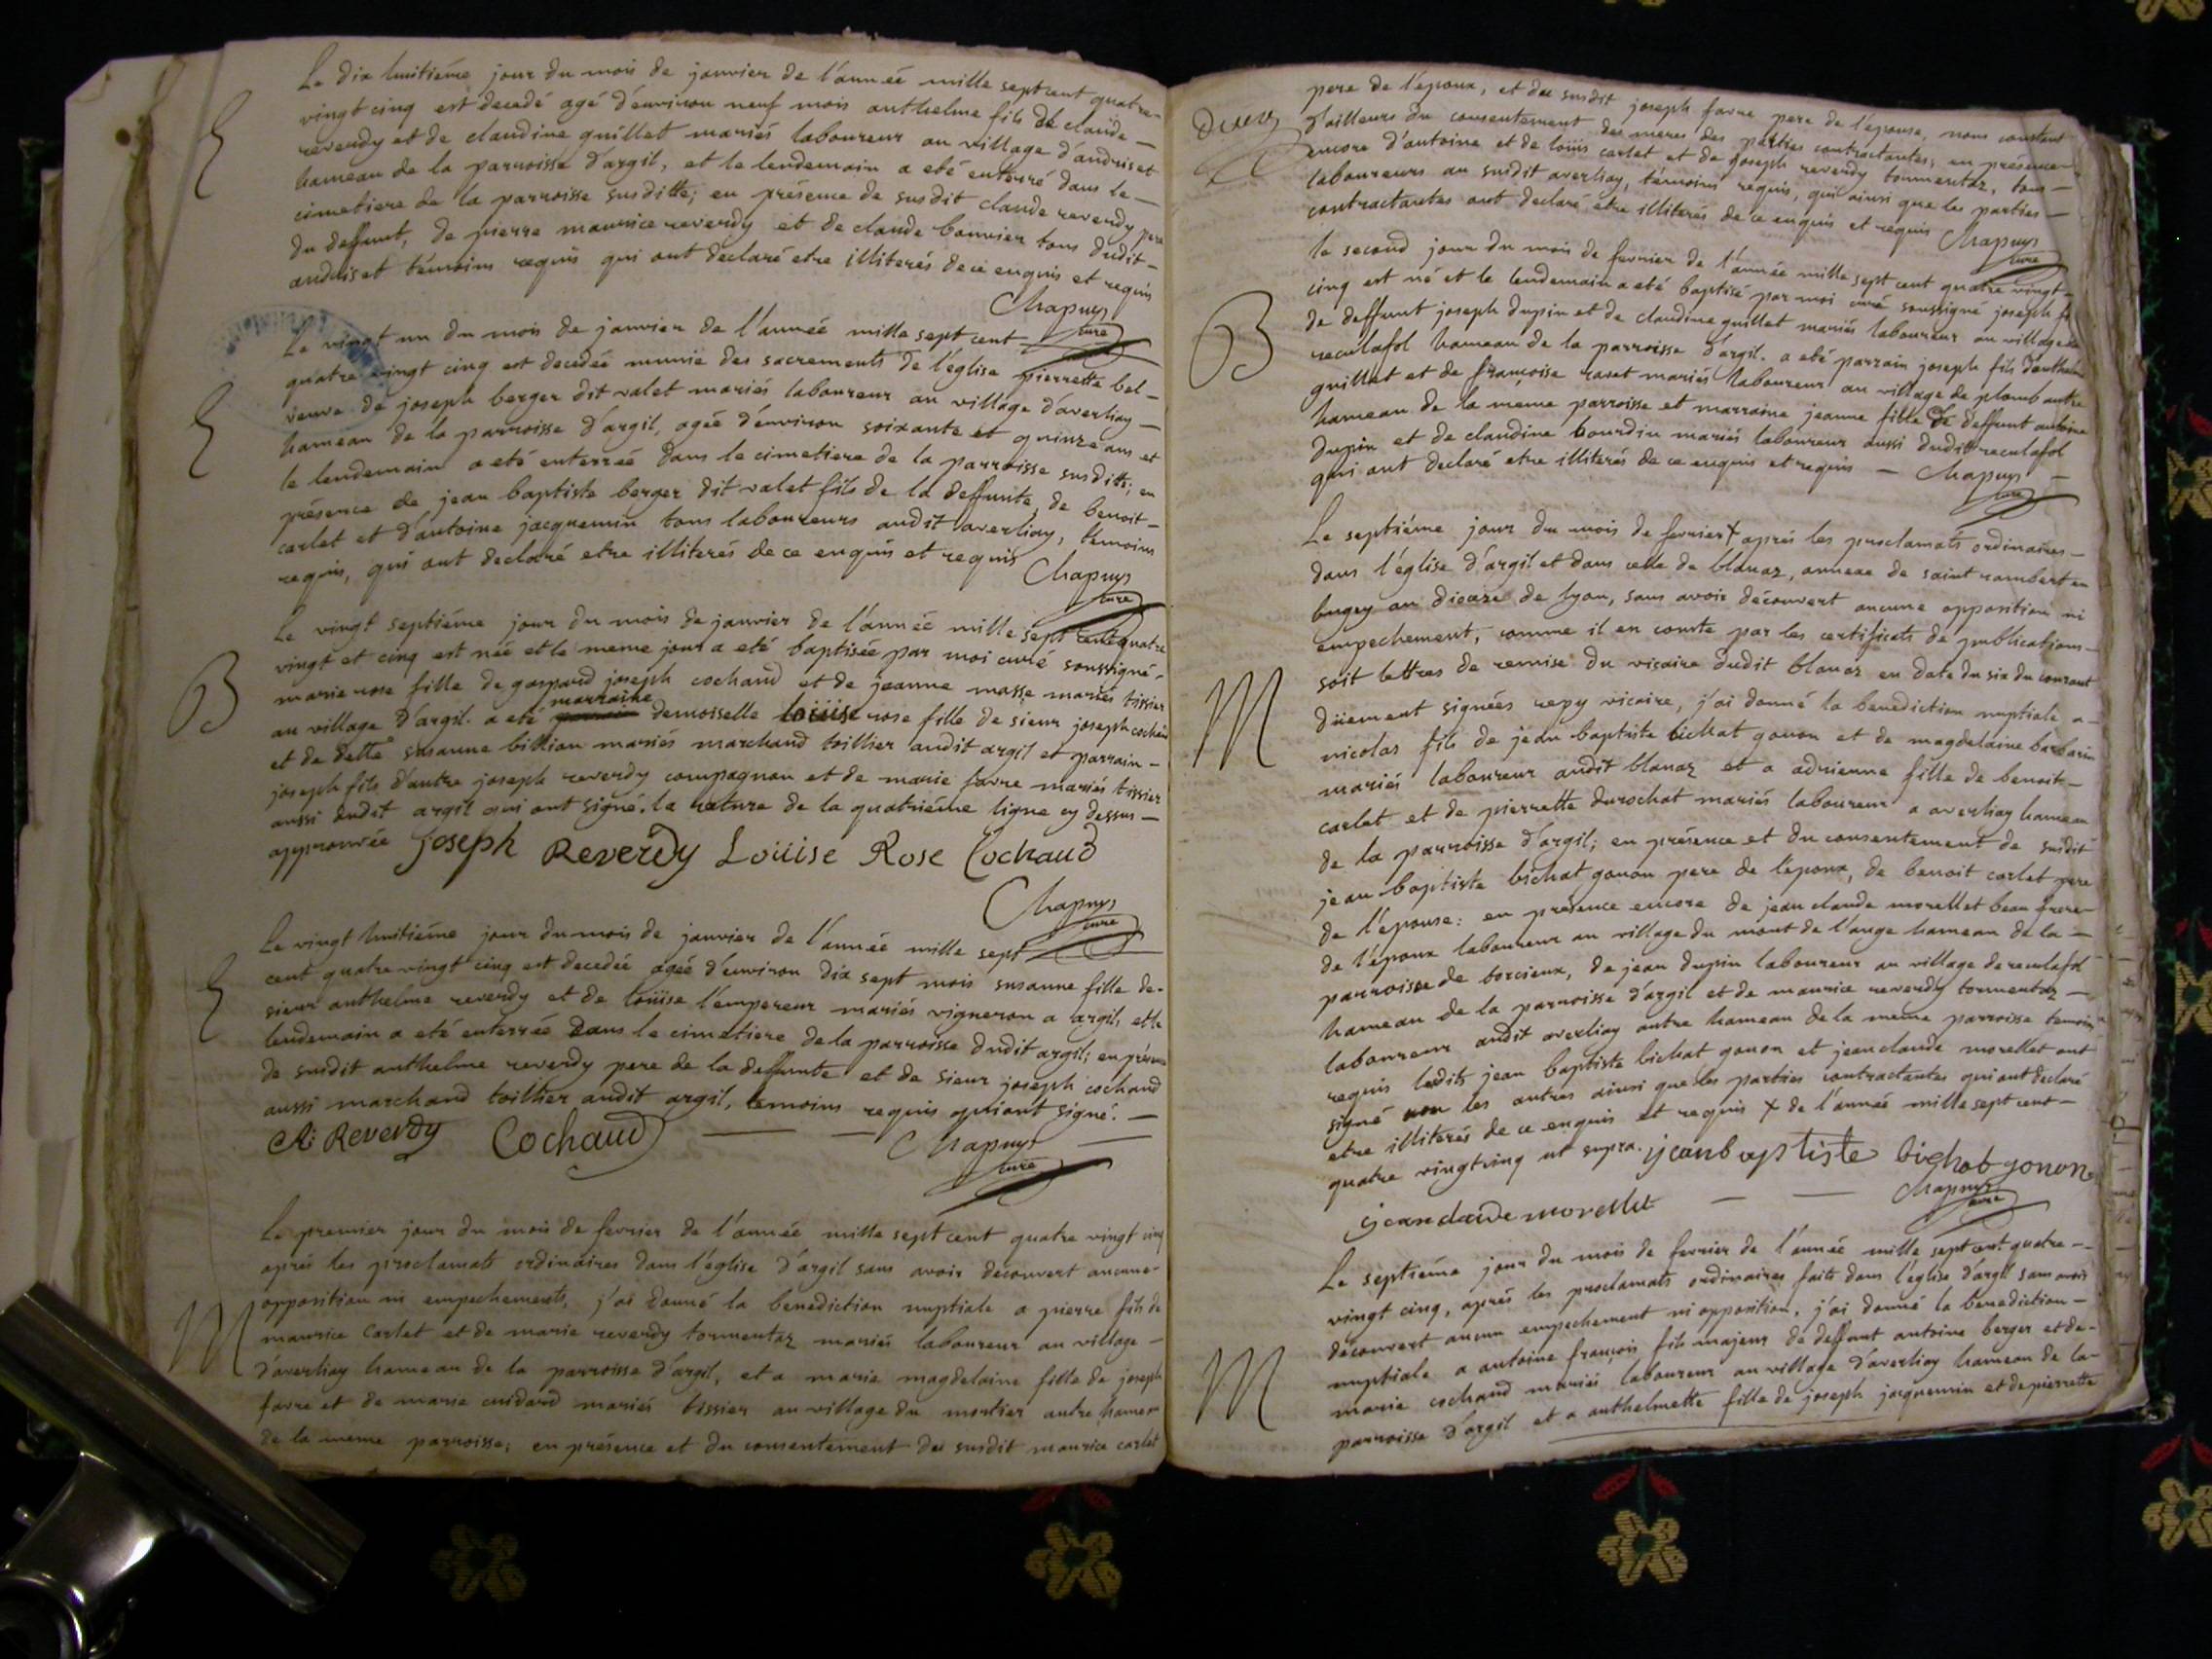 Le dix huitiéme jour du mois de janvier de l'année mille septcent quatre-
vingt cinq est decedé agé d'environ neuf mois anthelme fils de claude
reverdy et de claudine guillet mariés laboureur au village d'andriset
hameau de la parroisse d'argil, et le lendemain a eté enterré dans le
cimetiere de la parroisse susditte; en présence de susdit claude reverdy pere
du deffunt, de pierre maurice reverdy et de claude bouvier tous dudit
andriset témoins requis qui ont declaré etre illiterés de ce enquis et requis
Chapuys
curé
Le vingt un du mois de janvier de l'année mille sept cent
quatre vingt cinq est decedée munie des sacrements de l'église pierrette bel
veuve de joseph berger dit valet mariés laboureur au village d'averliay
hameau de la parroisse d'argil, agée d'environ soixante et quinze ans et
le lendemain a eté enterrée dans le cimetiere de la parroisse susditte; en
présence de jean baptiste berger dit valet fils de la deffunte, de benoit
carlet et d'antoine jacquemin tous laboureurs audit averliay, témoins
requis, qui ont declaré etre illiterés de ce enquis et requis
Chapuys
curé
Le vingt septiéme jour du mois de janvier de l'année mille sept cent quatre
vingt et cinq est née et le meme jour a eté baptisée par moi curé soussigné
marie rose fille de gaspard joseph cochaud et de jeanne masse mariés tissier
au village d'argil. a eté marraine demoiselle loüise rose fille de sieur joseph cochaud
et de delle susanne billion mariés marchand toillier audit argil et parrain
joseph fils d'autre joseph reverdy compagnon et de marie favre mariés tissier
aussi dudit argil qui ont signé. la rature de la quatriéme ligne cy dessus
approuvée Joseph Reverdy Loüise Rose Cochaud
Chapuys
curé
Le vingt huitiéme jour du mois de janvier de l'année mille sept
cent quatre vingt cinq est decedée agée d'environ dix sept mois susanne fille de
sieur anthelme reverdy et de loüise l'empereur mariés vigneron a argil, et le
lendemain a eté enterrée dans le cimetiere de la parroisse dudit argil; en présence
de susdit anthelme reverdy pere de la deffunte et de sieur joseph cochaud
aussi marchand toillier audit argil, temoins requis qui ont signé.
A: Reverdy Cochaud Chapuys
curé
Le premier jour du mois de fevrier de l'année mille sept cent quatre vingt cinq
aprés les proclamats ordinaires dans l'église d'argil sans avoir découvert aucune
opposition ni empechements, j'ai donné la benediction nuptiale a pierre fils de
maurice Carlet et de marie reverdy tormentaz mariés laboureur au village
d'averliay hameau de la parroisse d'argil, et a marie magdelaine fille de joseph
favre et de marie cuidard mariés tissier au village du mortier autre hameau
de la meme parroisse; en présence et du consentement du susdit maurice carlet
pere de l'époux, et du susdit joseph favre pere de l'épouse, nous constant
d'ailleurs du consentement des meres des parties contractantes; en présence
encore d'antoine et de loüis carlet et de joseph reverdy tormentaz, tous
laboureurs au susdit averliay, témoins requis, qui ainsi que les parties
contractantes ont declaré etre illiterés de ce enquis et requis Chapuys
curé
le second jour du mois de fevrier de l'année mille sept cent quatre vingt
cinq est né et le lendemain a eté baptisé par moi curé soussigné joseph fils
de deffunt joseph dupin et de claudine guillet mariés laboureur au village de
reculafol hameau de la parroisse d'argil. a eté parrain joseph fils d'anthelme
guillet et de françoise ravet mariés laboureur au village de plomb autre
hameau de la meme parroisse et marraine jeanne fille de deffunt antoine
dupin et de claudine bourdin mariés laboureur aussi dudit reculafol
qui ont declaré etre illiterés de ce enquis et requis Chapuys
curé
Le septiéme jour du mois de fevrier + aprés les proclamats ordinaires
dans l'église d'argil et dans celle de blanaz, annexe de saint rambert en
bugey au diocaze de lyon, sans avoir découvert aucune opposition ni
empechement, comme il en conste par les certificats de publications
soit lettres de remise du vicaire dudit blanaz en date du six du courant
düement signées repy vicaire, j'ai donné la benediction nuptiale a
nicolas fils de jean baptiste bichat gonon et de magdelaine barbarin
mariés laboureur audit blanaz et a adrienne fille de benoit
carlet et de pierrette durochat mariés laboureur a averliay hameau
de la parroisse d'argil; en présence et du consentement de susdit
jean baptiste bichat gonon pere de l'époux, de benoit carlet pere
de l'épouse: en présence encore de jean claude morellet beau frere
de l'époux laboureur au village du mont de l'ange hameau de la
parroisse de torcieux, de jean dupin laboureur au village de reculafol
hameau de la parroisse d'argil et de maurice reverdy tormentaz
laboureur audit averliay autre hameau de la meme parroisse temoins
requis lesdits jean baptiste bichat gonon et jean claude morellet ont
signé non les autres ainsi que les parties contractantes qui ont declaré
etre illiterés de ce enquis et requis + de l'année mille sept cent
quatre vingt cinq ut supra. jeanbaptiste bichat gonon
jean claude morellet Chapuys
curé
Le septiéme jour du mois de fevrier de l'année mille sept cent quatre
vingt cinq, aprés les proclamats ordinaires faits dans l'église d'argil sans avoir
découvert aucun empechement ni opposition, j'ai donné la benediction
nuptiale a antoine françois fils majeur de deffunt antoine berger et de
marie cochaud mariés laboureur au village d'averliay hameau de la
parroisse d'argil et a anthelmette fille de joseph jacquemin et de pierrette